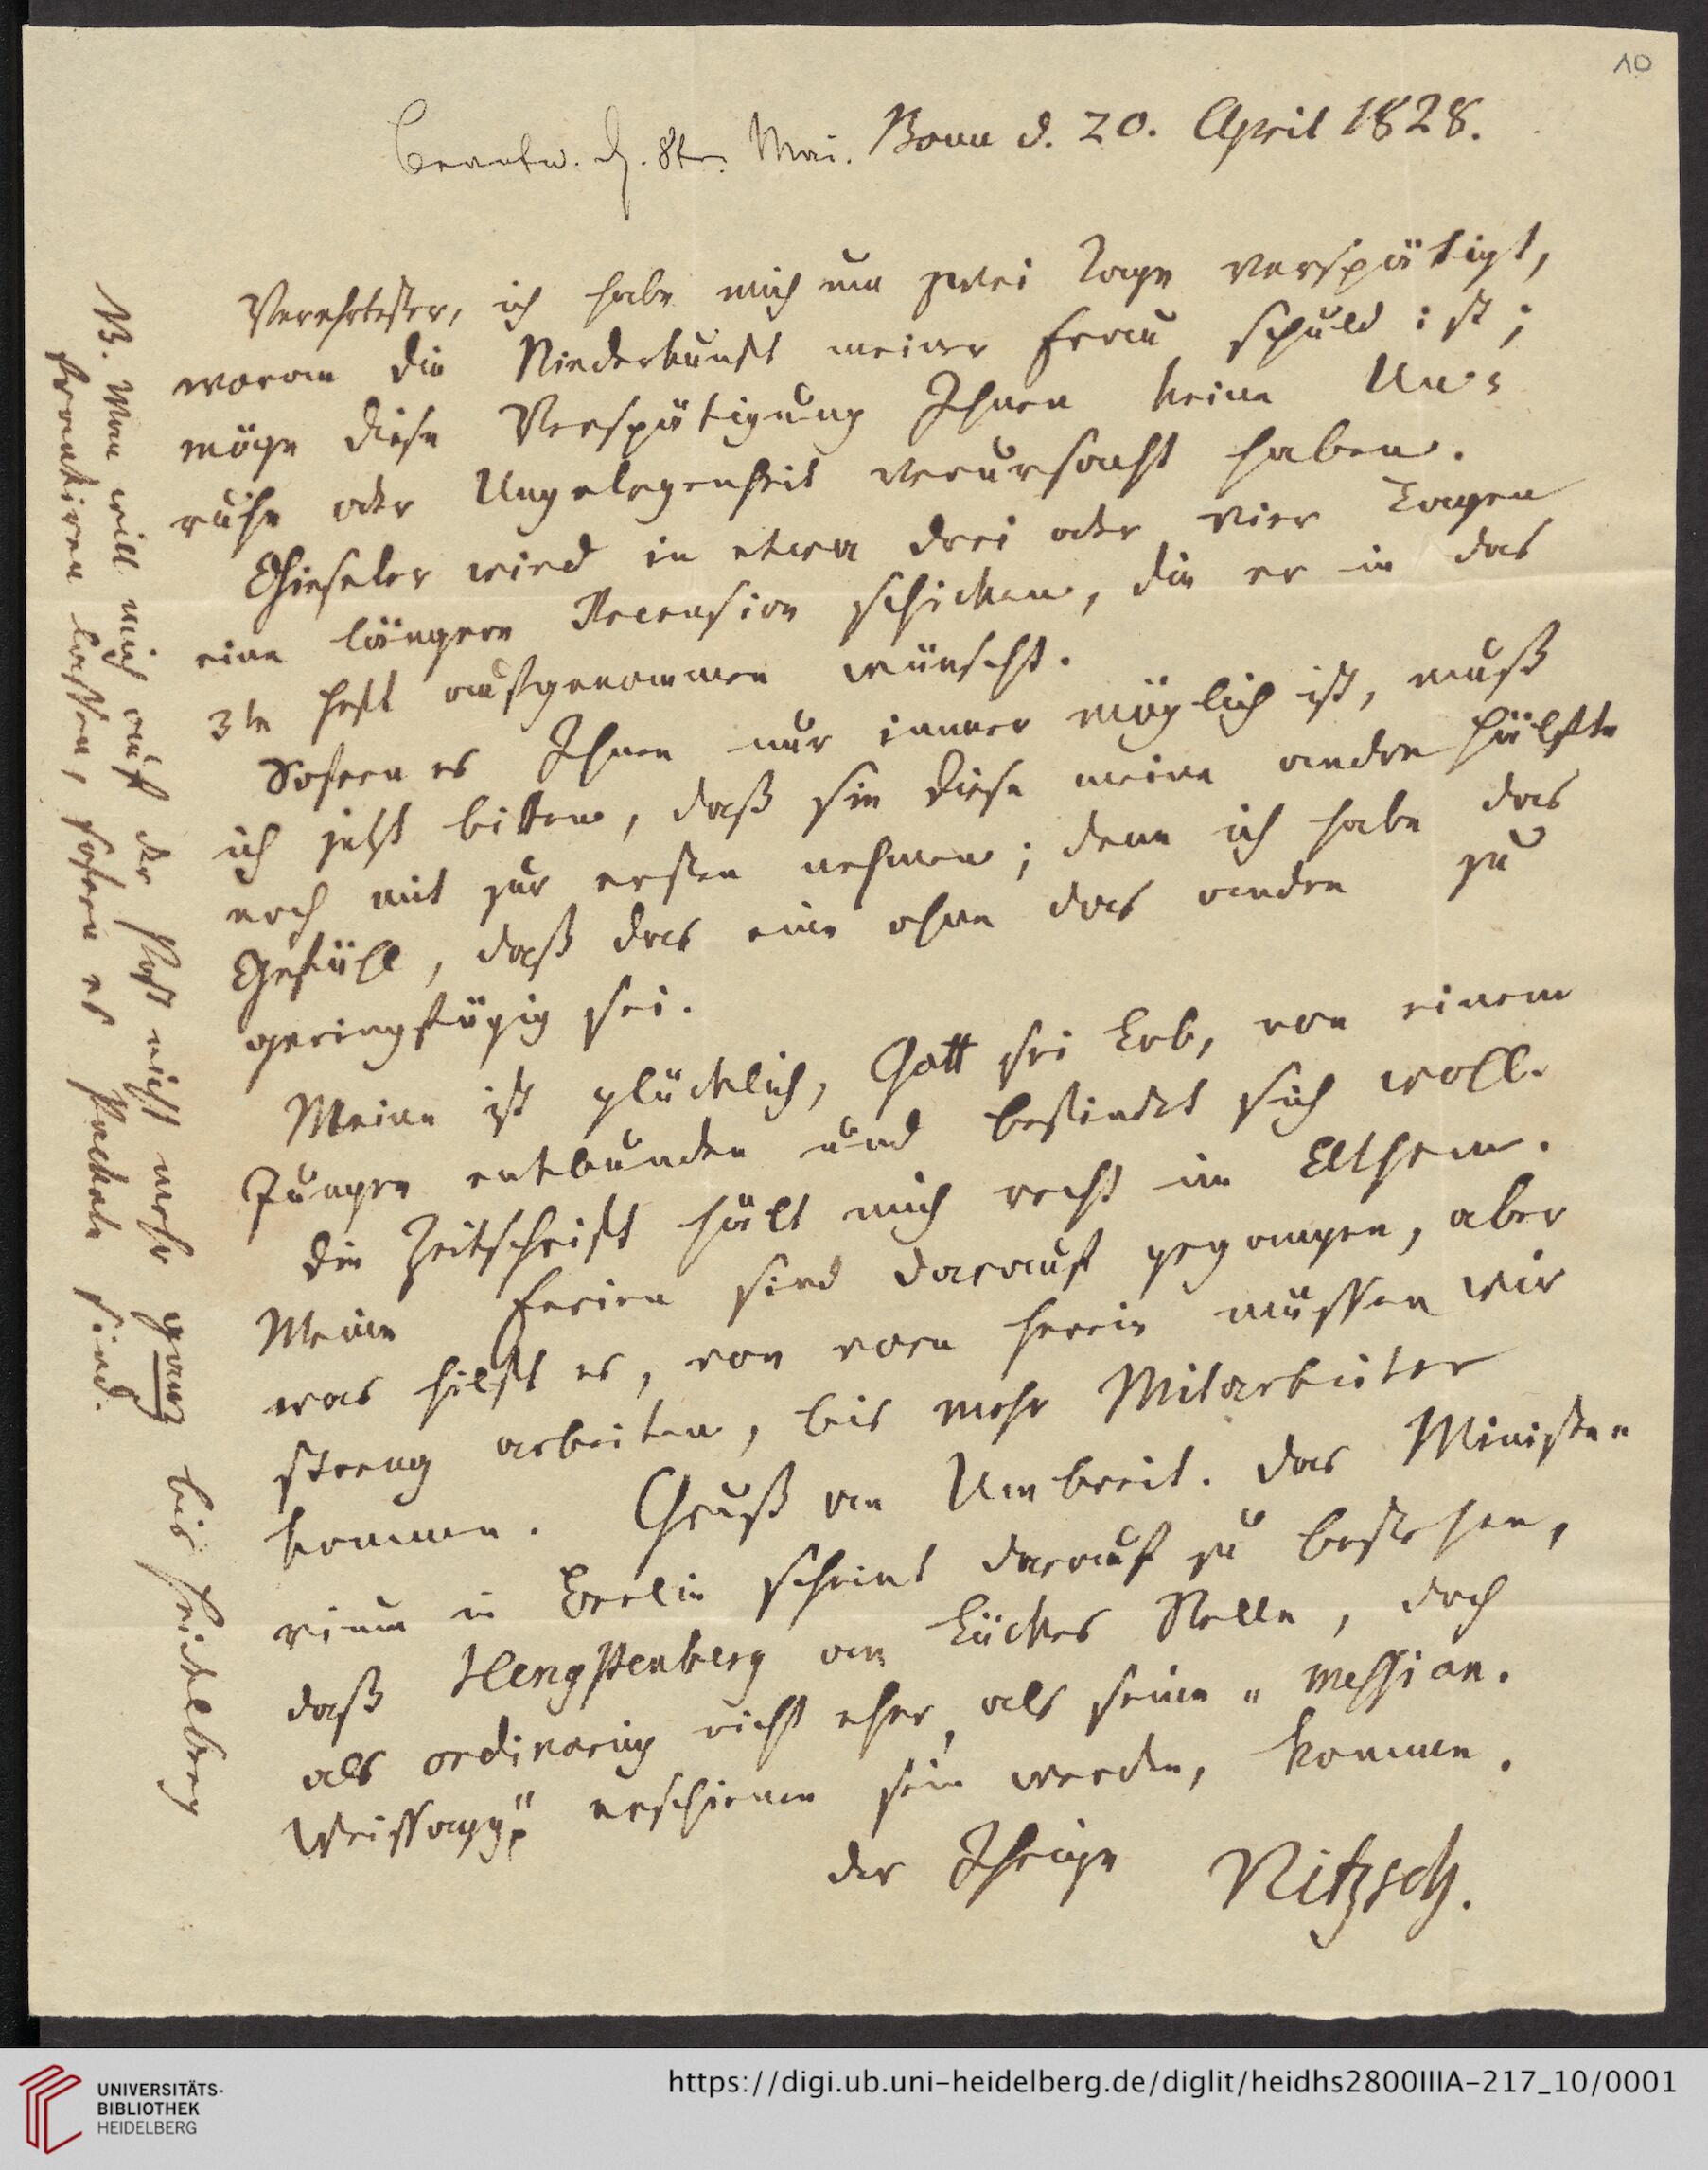 10
Beantw. d. 8ten Mai. Bonn d. 20. April 1828.
Verehrtester, ich habe mich um zwei Tage verspätigt,
woran die Niederkunft meiner Frau schuld ist;
möge diese Verspätigung Ihnen keine Un-
ruhe oder Ungelegenheit verursacht haben.
Gieseler wird in etwa drei oder vier Tagen
eine längere Recension schicken, die er in das
3te Heft aufgenommen wünscht.
Sofern es Ihnen nur immer möglich ist, muß
ich jetzt bitten, daß sie diese meine andre Hälfte
noch mit zur ersten nehmen; denn ich habe das
Gefühl, daß das eine ohne das andre zu
geringfügig sei.
Meine ist glücklich, Gott sei Lob, von einem
Jungen entbunden und befindet sich wohl.
Die Zeitschrift hält mich recht im Athem.
Meine Ferien sind darauf gegangen, aber
was hilft es, von vorn herein müssen wir
streng arbeiten, bis mehr Mitarbeiter
kommen. Gruß an Umbreit. Das Ministe-
rium in Berlin scheint darauf zu bestehen,
daß Hengstenberg an Lückes Stelle, doch
als ordinarius nicht eher, als seine „messian.
Weissagg." erschienen sein werden, komme.
der Ihrige Nitzsch.
N. Man will mich auf der Post nicht mehr ganz bis Heidelberg
frankiren lassen, sofern es Packete sind.
UNIVERSITÄTS-
BIBLIOTHEK
HEIDELBERG
https://digi.ub.uni-heidelberg.de/diglit/heidhs2800IIIA-217_10/0001